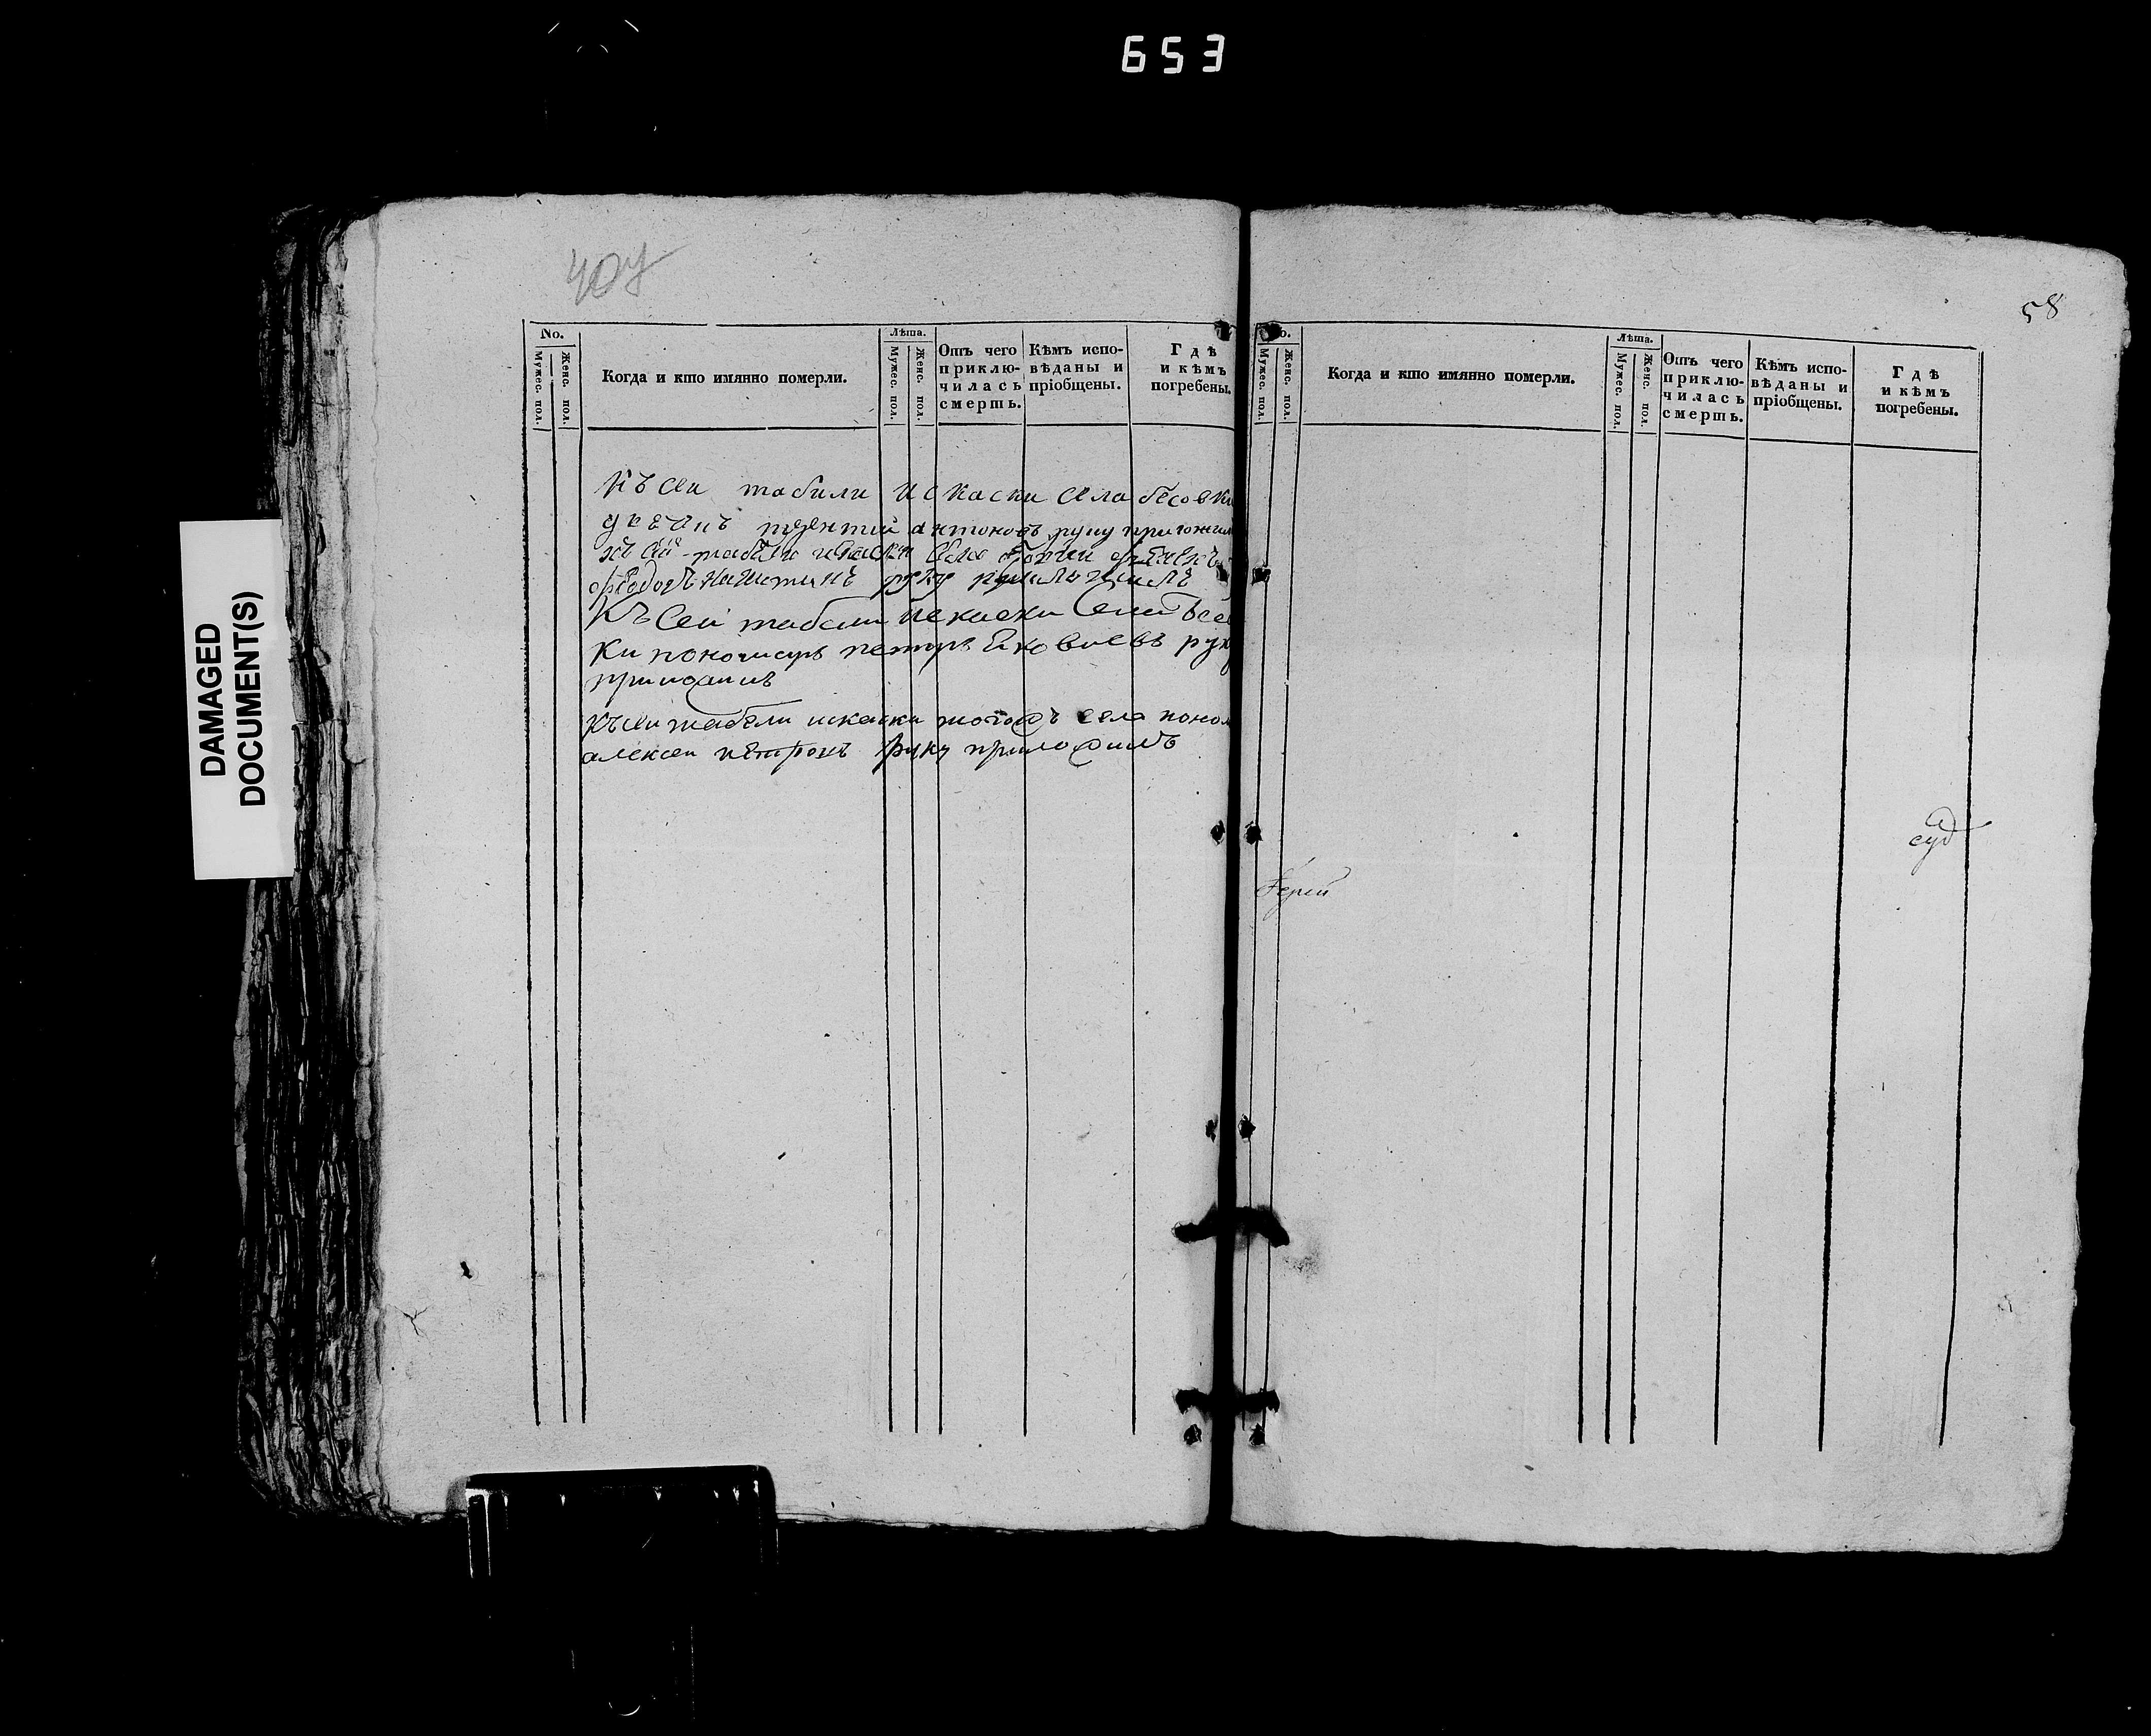 653
58
DAMAGED
DOCUMENT(S)
No.
Мужес. пол.
Женс. пол.
Когда и кто имянно померли.
Лѣта.
Мужес. пол.
Женс. пол.
Отъ чего
приклю-
чилась
смерть.
Кѣмъ испо-
вѣданы и
пріобщены.
Гдѣ
и кѣмъ
погребены.
къ сеи табили искаски села бесовки
антоновъ руку приложил
къ сей табели искаски села
федоръ никитинъ руку
Къ Сеи табели искаски
ки пономарь петръ руку
къ сеи табели искаски тогожъ села поном
алексеи петровъ руку приложилъ
No.
Мужес. пол.
Женс. пол.
Когда и кто имянно померли.
Лѣта.
Мужес. пол.
Женс. пол.
Отъ чего
приклю-
чилась
смерть.
Кѣмъ испо-
вѣданы и
пріобщены.
Гдѣ
и кѣмъ
погребены.
Іерей